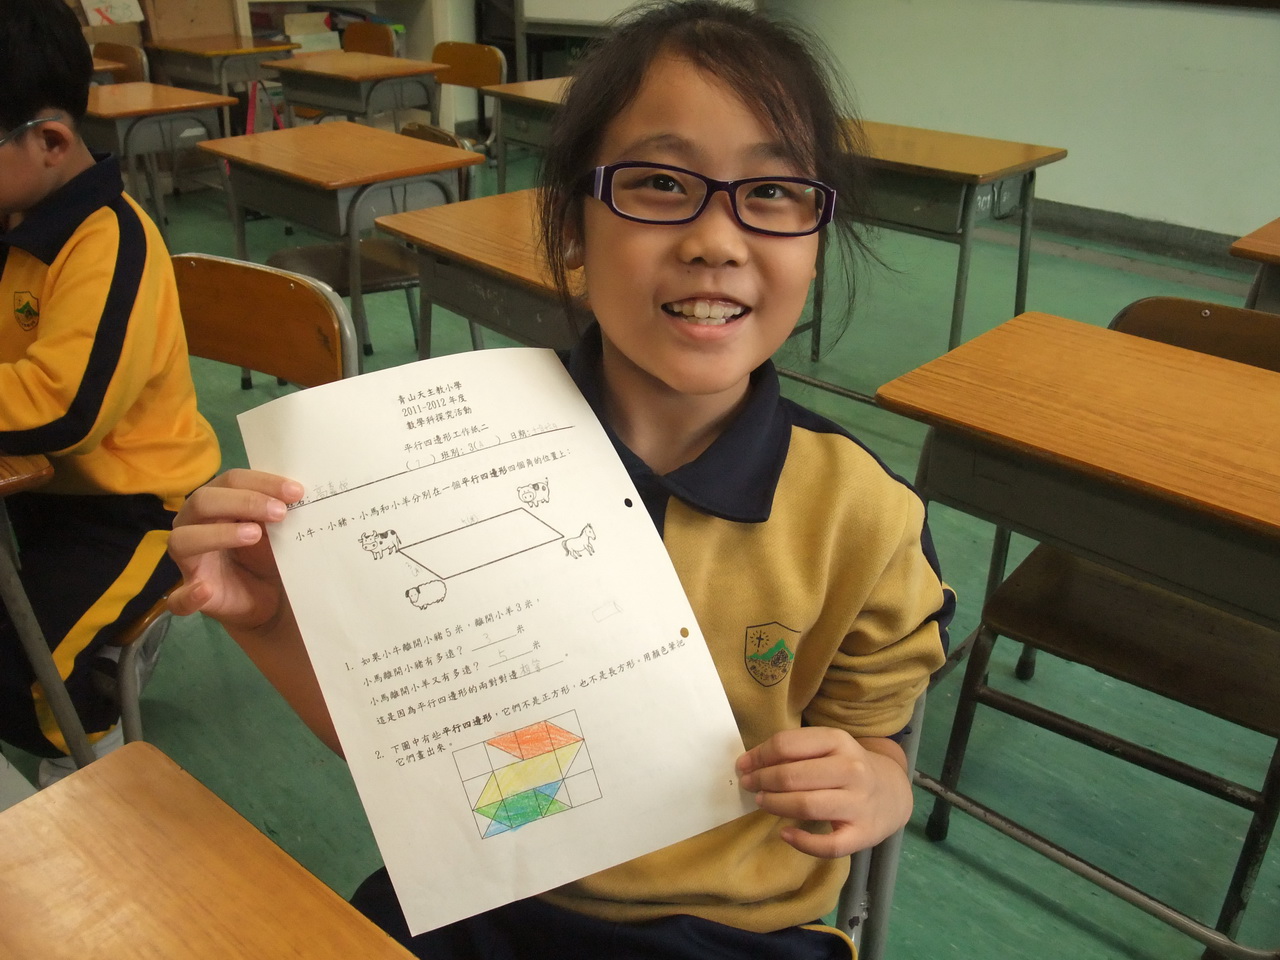 青山天主教小學
2011-2012年度
數學科探究活動
平行四邊形工作紙二
姓名: ( ) 班別: 3( ) 日期:
小牛、小豬、小馬和小羊分別在一個平行四邊形四個角的位置上:
1. 如果小牛離開小豬5米,離開小羊3米,
小馬離開小豬有多遠? 3 米
小馬離開小羊又有多遠? 5 米
這是因為平行四邊形的兩對對邊相等。
2. 下圖中有些平行四邊形,它們不是正方形,也不是長方形,用顏色筆把
它們畫出來。
2